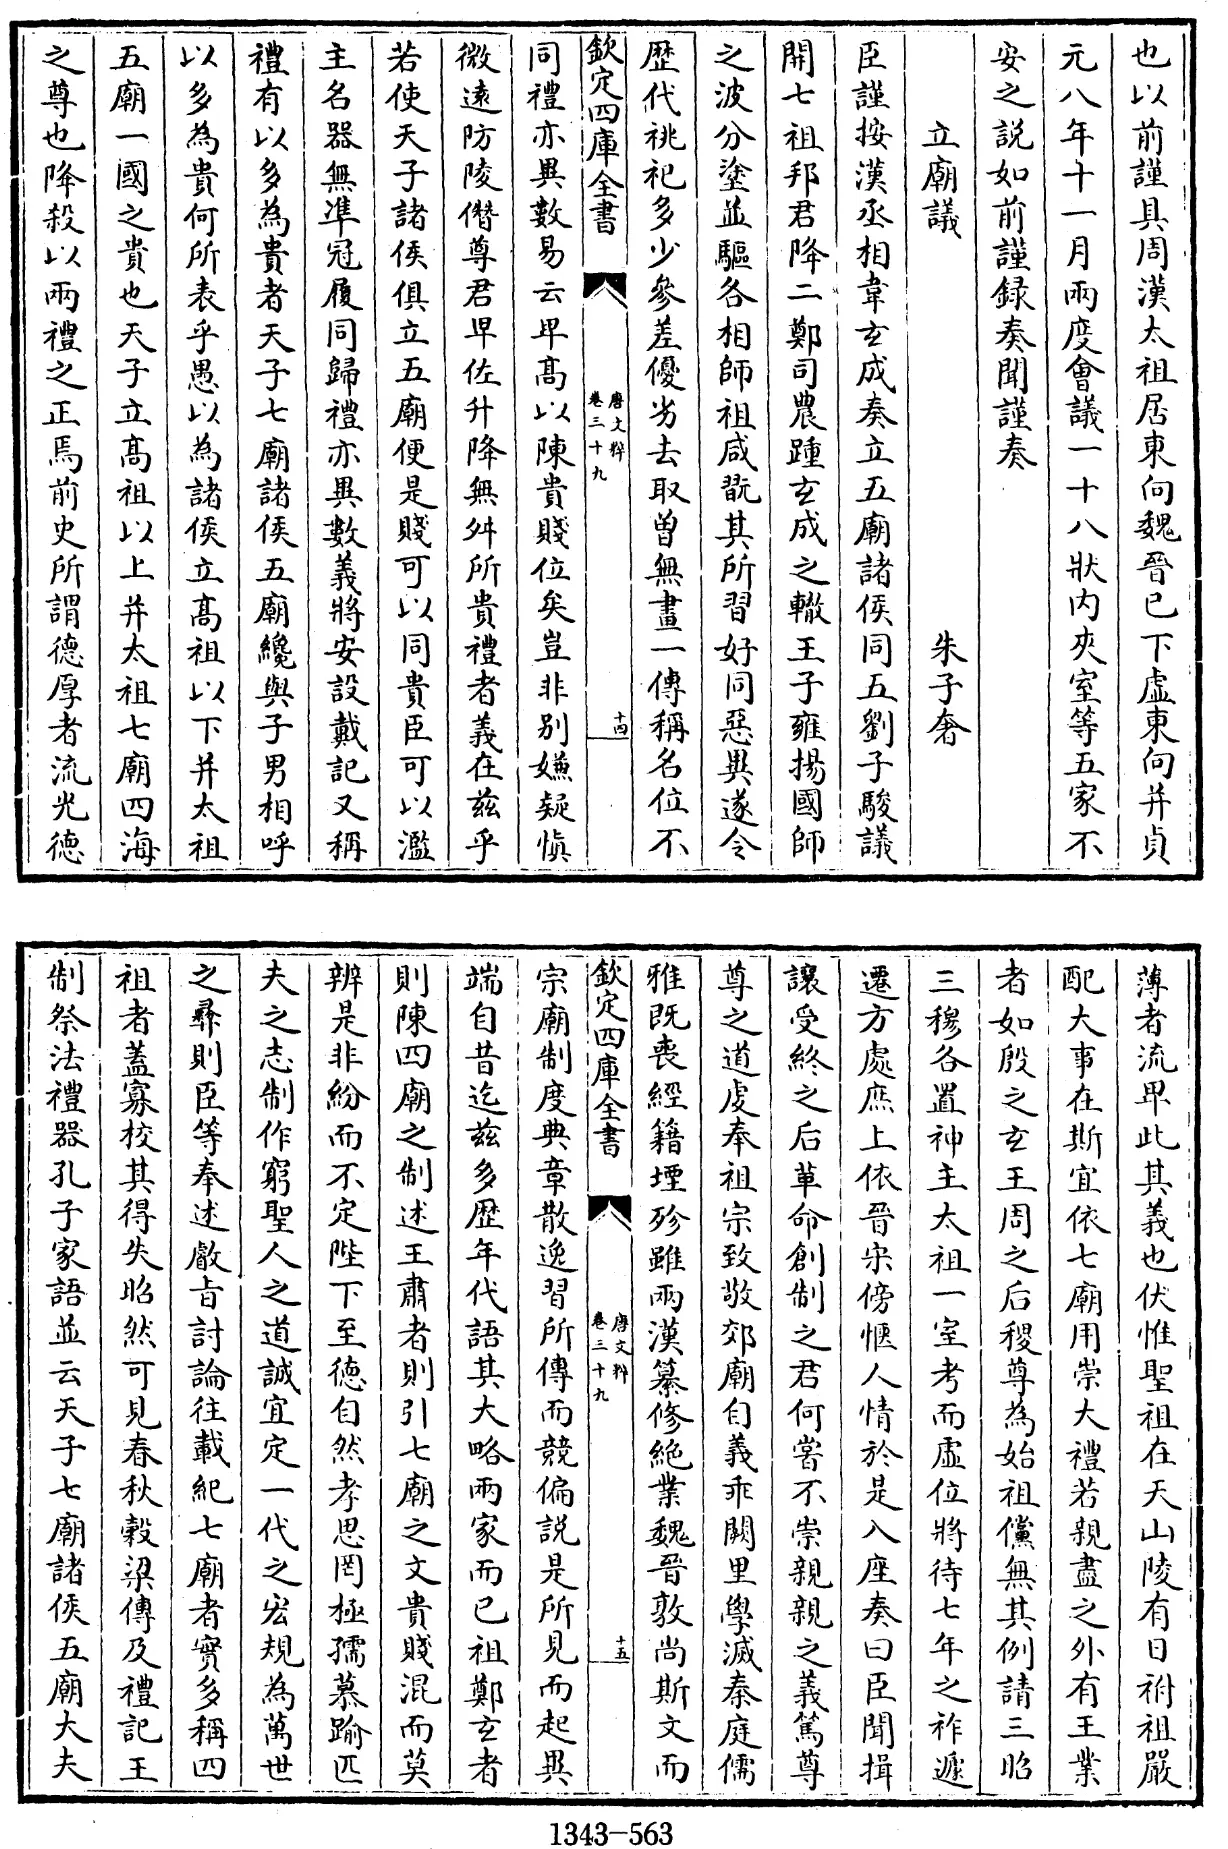 也以前謹具周漢太祖居東向魏晉已下虛東向并貞
元八年十一月兩度會議一十八狀内夾室等五家不
安之説如前謹録奏聞謹奏
立廟議　朱子奢
臣謹按漢丞相韋玄成奏立五廟諸侯同五劉子駿議
開七祖邦君降二鄭司農踵玄成之轍王子雍揚國師
之波分塗並驅各相師祖咸翫其所習好同惡異遂令
歴代祧祀多少參差優劣去取曽無畫一傳稱名位不
欽定四庫全書
唐文粹
卷三十九
十四
同禮亦異數易云卑髙以陳貴賤位矣豈非别嫌疑慎
微逺防陵僭尊君卑佐升降無舛所貴禮者義在兹乎
若使天子諸侯俱立五廟便是賤可以同貴臣可以濫
主名器無凖冠履同歸禮亦異數義將安設戴記又稱
禮有以多為貴者天子七廟諸侯五廟纔與子男相呼
以多為貴何所表乎愚以為諸侯立髙祖以下并太祖
五廟一國之貴也天子立髙祖以上并太祖七廟四海
之尊也降殺以兩禮之正焉前史所謂德厚者流光德
薄者流卑此其義也伏惟聖祖在天山陵有日祔祖嚴
配大事在斯宜依七廟用崇大禮若親盡之外有王業
者如殷之玄王周之后稷尊為始祖儻無其例請三昭
三穆各置神主太祖一室考而虛位將待七年之祚遞
遷方處庶上依晉宋傍愜人情於是入座奏曰臣聞揖
讓受終之后革命創制之君何嘗不崇親親之義篤尊
尊之道虔奉祖宗致敬郊廟自義乖闕里學滅秦庭儒
雅既喪經籍堙殄雖兩漢纂修絶業魏晉敦尚斯文而
欽定四庫全書
唐文粹
卷三十九
十五
宗廟制度典章散逸習所傳而競偏説是所見而起異
端自昔迄兹多歴年代語其大略兩家而已祖鄭玄者
則陳四廟之制述王肅者則引七廟之文貴賤混而莫
辨是非紛而不定陛下至德自然孝思罔極孺慕踰匹
夫之志制作窮聖人之道誠宜定一代之宏規為萬世
之彞則臣等奉述叡旨討論往載紀七廟者實多稱四
祖者蓋寡校其得失昭然可見春秋穀梁傳及禮記王
制祭法禮器孔子家語並云天子七廟諸侯五廟大夫
1343-563